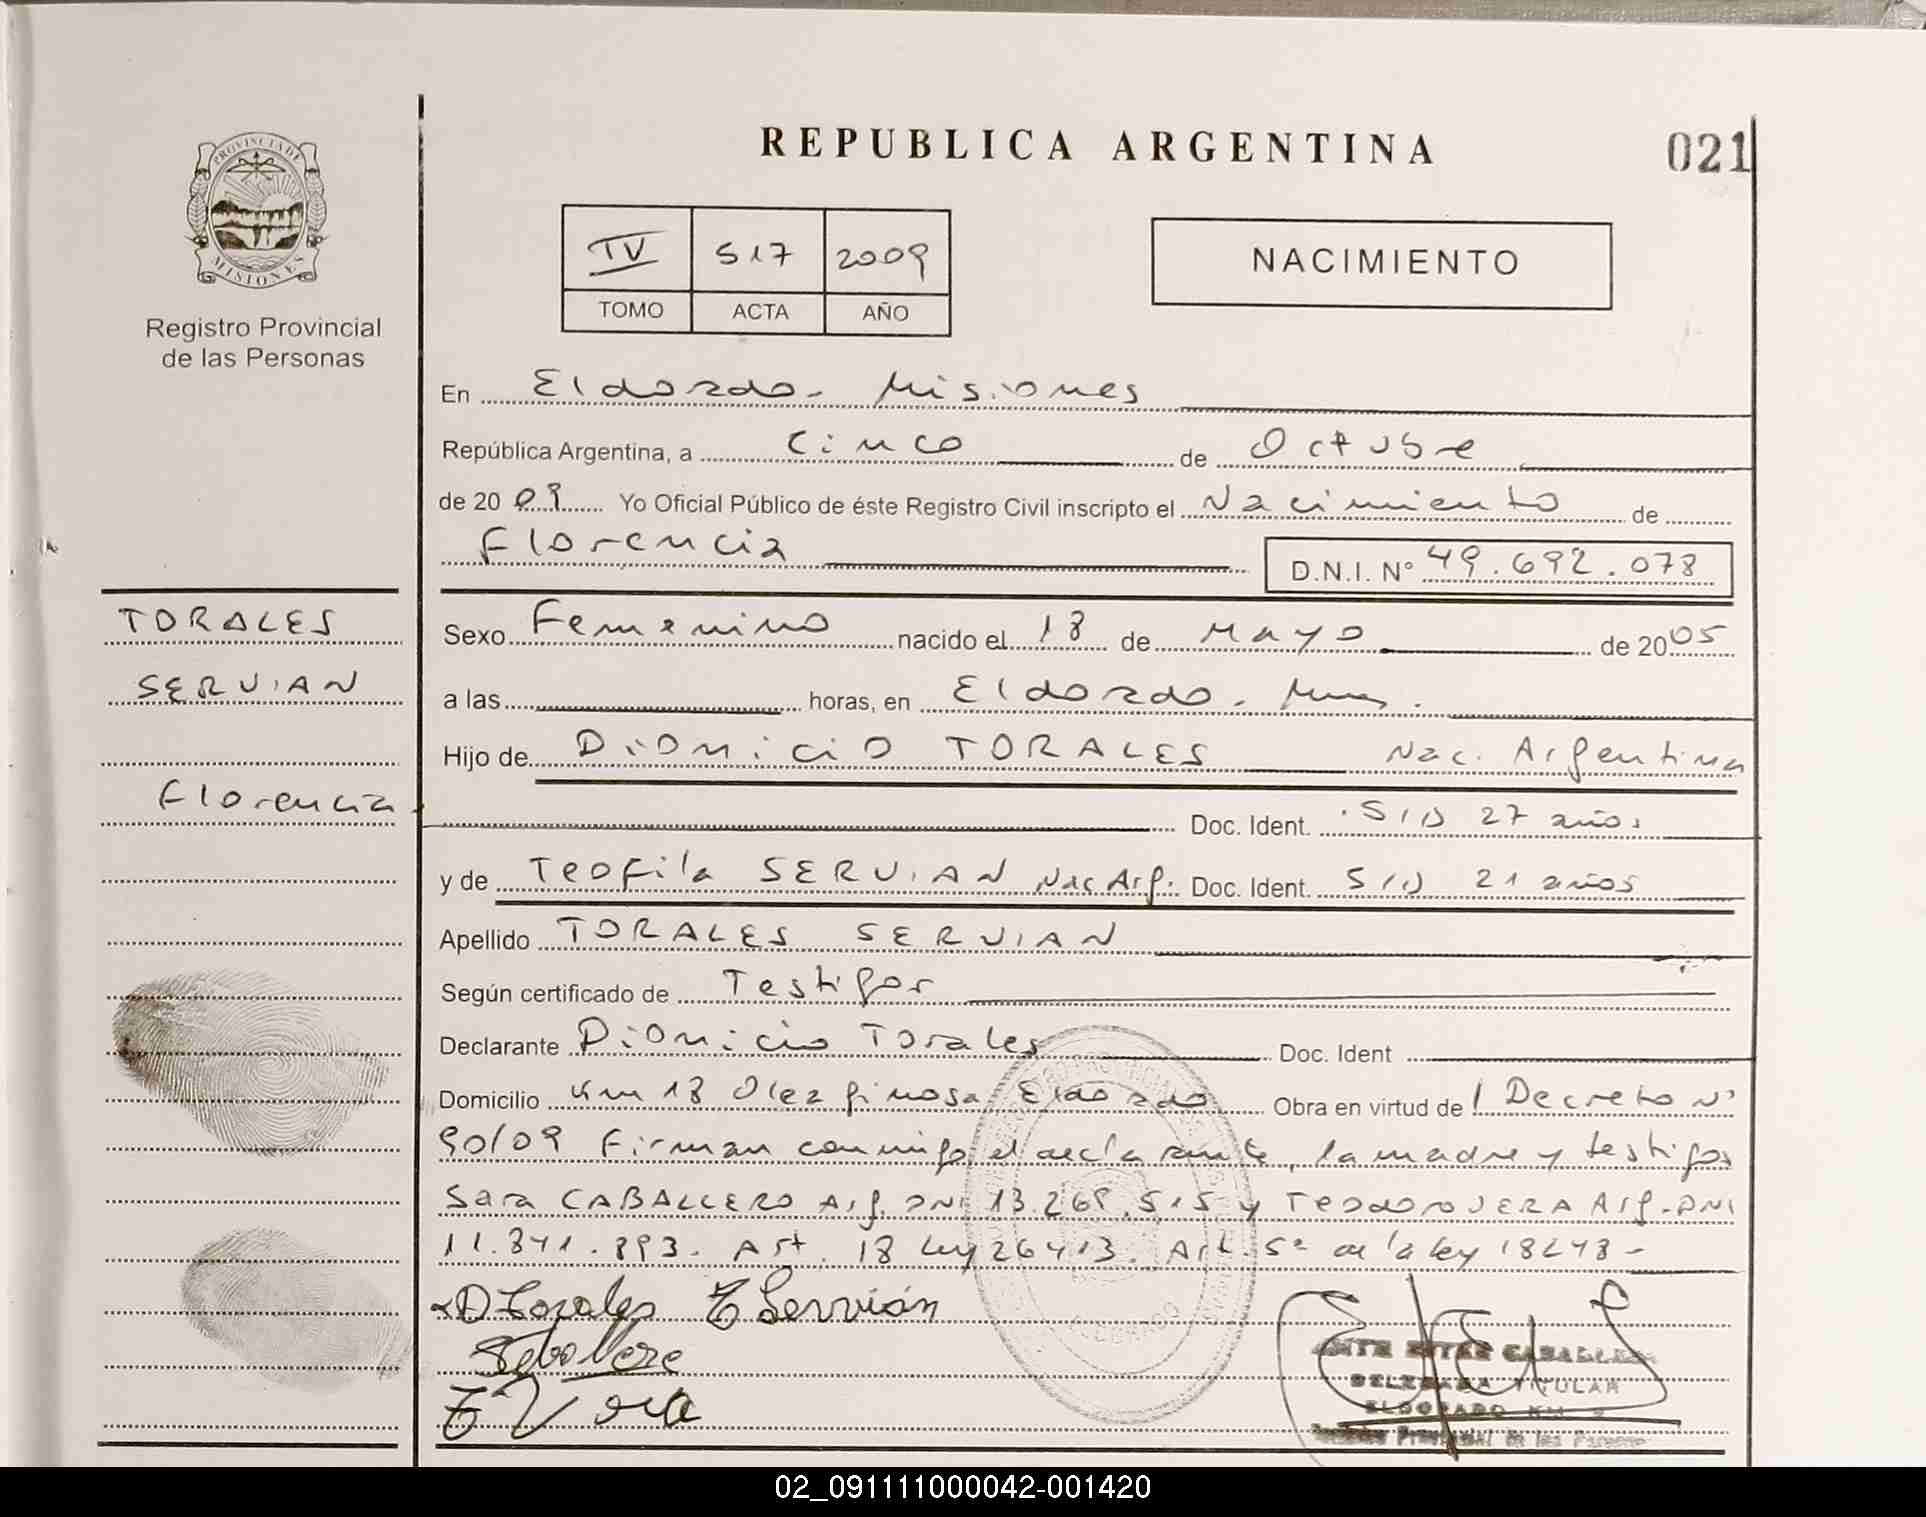 REPUBLICA ARGENTINA
021
PROVINCIA DE
MISIONES
Registro Provincial
de las Personas
IV 517 2009
TOMO ACTA AÑO
NACIMIENTO
En Eldorado - Misiones
República Argentina, a Cinco de Octubre
de 20 09 Yo Oficial Público de éste Registro Civil inscripto el Nacimiento de
Florencia D.N.I. Nº 49.692.078
Sexo Femenino nacido el 18 de Mayo de 2005
a las horas, en Eldorado - Mnes.
Hijo de Dionicio TORALES Nac. Argentina
Doc. Ident. S/D 27 años
y de Teofila SERVIAN Nac Arg. Doc. Ident. S/D 21 años
Apellido TORALES SERVIAN
Según certificado de Testigos
Declarante Dionicio Torales Doc. Ident
Domicilio Km 18 Eldorado Obra en virtud de Decreto Nº
90/09 Firman conmigo el declarante, la madre y testigos
Sara CABALLERO Arg. DNI 13.269.515 y Teodoro VERA Arg. DNI
11.841.893. Art. 18 Ley 26413. Art. 5º de la ley 18248 -
D Torales T Servián
T Vera
CABALLERO
DELEGADA TITULAR
ELDORADO KM 9
Registro Provincial de las Personas
TORALES
SERVIAN
Florencia
02_091111000042-001420